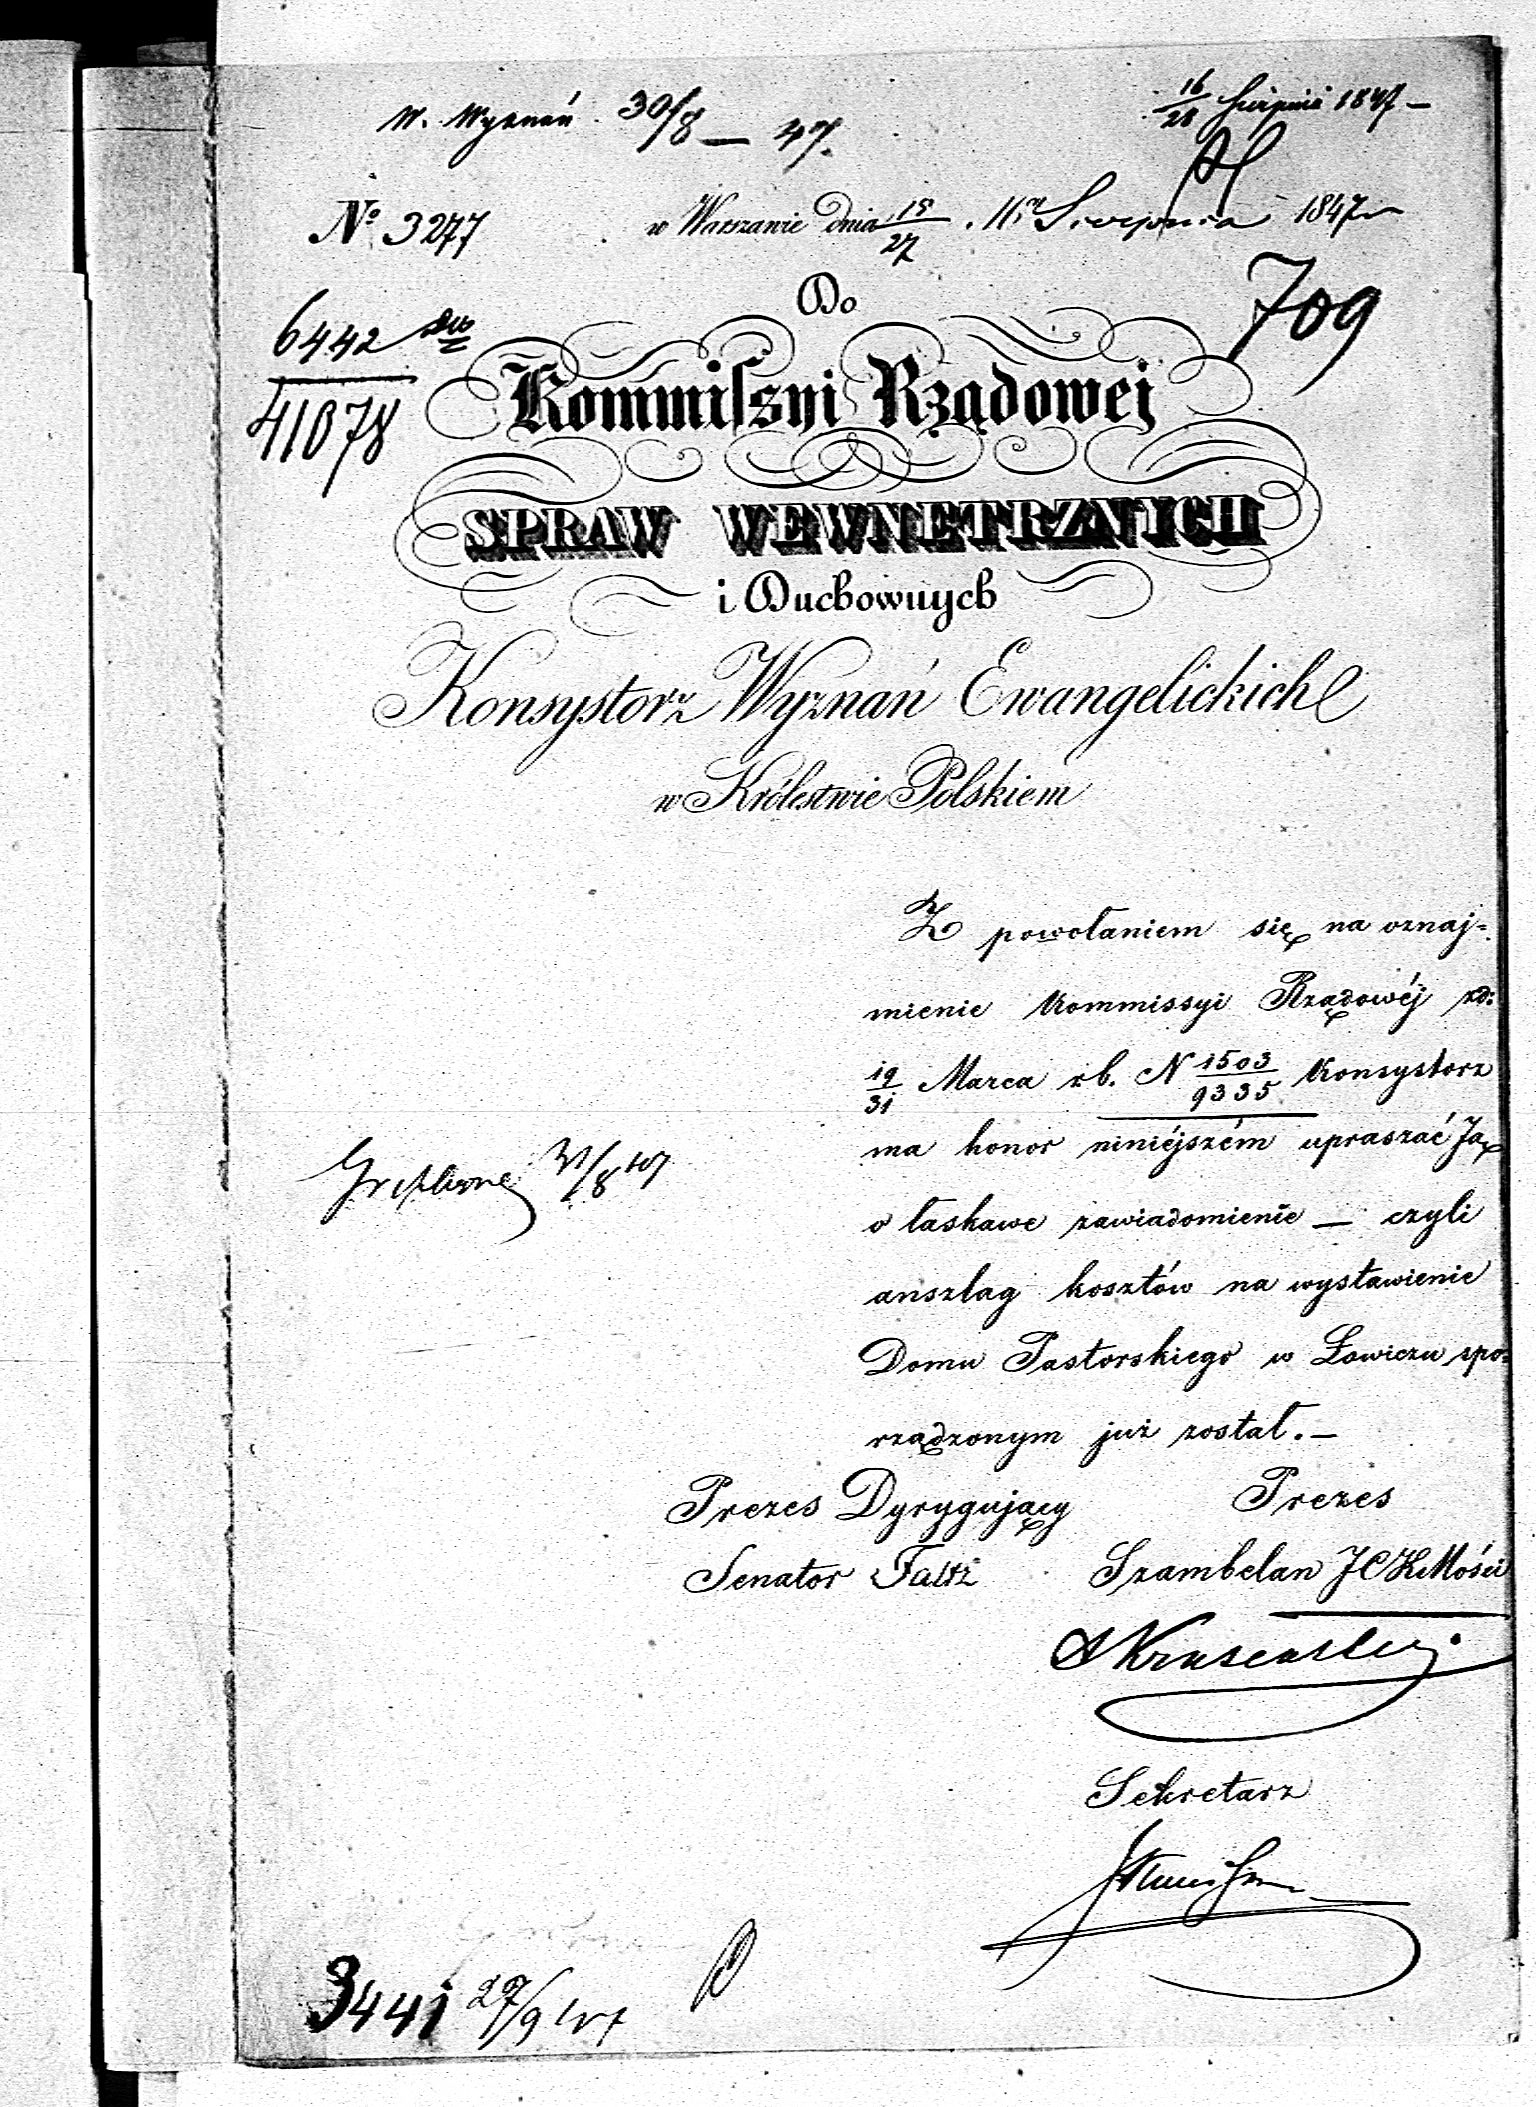 W. Wyznań 30/8 — 47.
16/28 Sierpnia 1847 —
№ 3277
w Warszawie dnia 15/27 Sierpnia 1847
709
6442
41078
Do
Kommiſszyi Rządowej
SPRAW WEWNĘTRZNYCH
i Duchownych
Konsystorz Wyznań Ewangelickich
w Królestwie Polskiem
Z powołaniem się na oznaj=
mienie Kommissyi Rządowéj zd:
19/31 Marca rb. N 1503/9335 Konsystorz
ma honor niniéjszém upraszać Ją
o łaskawe zawiadomienie — czyli
anszlag kosztów na wystawienie
Domu Pastorskiego w Łowiczu spo=
rządzonym już został. —
31/8 47
Prezes Dyrygujący
Prezes
Senator
Szambelan JCKMości
Sekretarz
3441 27/9 47